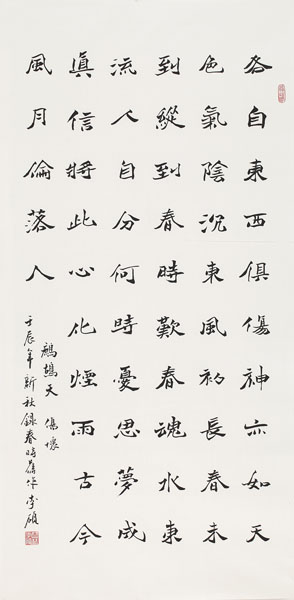 各自東西俱傷神亦如天
色氣陰沉東風初長春未
到縱到春時歎春魂水東
流人自分何時憂思夢成
真信將此心化煙雨古今
風月倫落人
鷓鴣天 傷懷
壬辰年新秋錄春時舊作 李碩